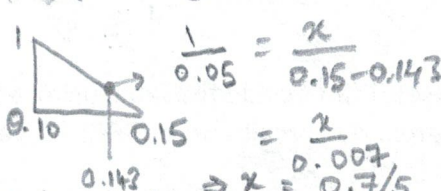 1
0.10
0.15
0.143
1/0.05 = x/0.15-0.143
= x/0.007
⇒ x = 0.7/5